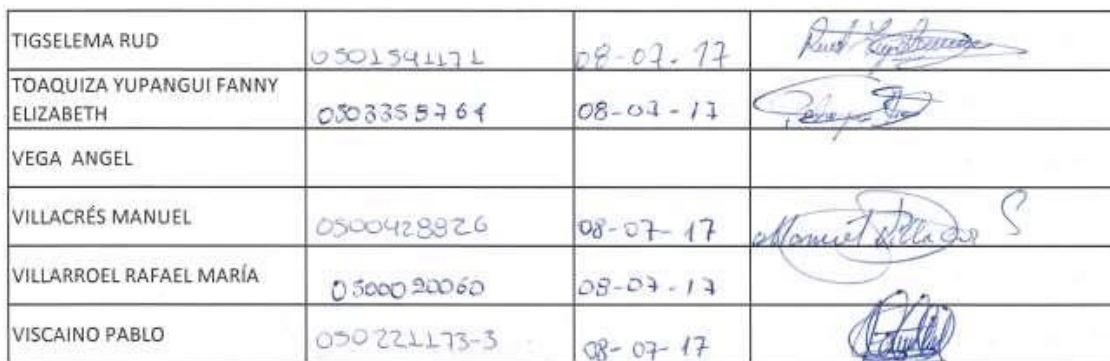 TIGSELEMA RUD 0501541171 08-07-17
TOAQUIZA YUPANGUI FANNY
ELIZABETH 0503355764 08-07-17
VEGA ANGEL
VILLACRÉS MANUEL 0500428826 08-07-17 Manuel
VILLARROEL RAFAEL MARÍA 0500020060 08-07-17
VISCAINO PABLO 050221173-3 08-07-17